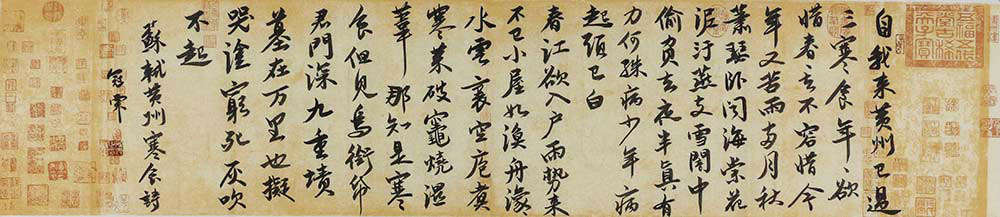 自我来黄州已過
三寒食年々欲
惜春々去不容惜今
年又苦雨两月秋
蕭瑟卧闻海棠花
泥汙燕支雪闇中
偷負去夜半真有
力何殊病少年病
起頭已白
春江欲入户雨勢来
不已小屋如漁舟濛
水雲裏空庖煮
寒菜破竈燒濕
葦那知是寒
食但见烏銜纸
君門深九重墳
墓在万里也擬
哭塗窮死灰吹
不起
蘇軾黄州寒食詩